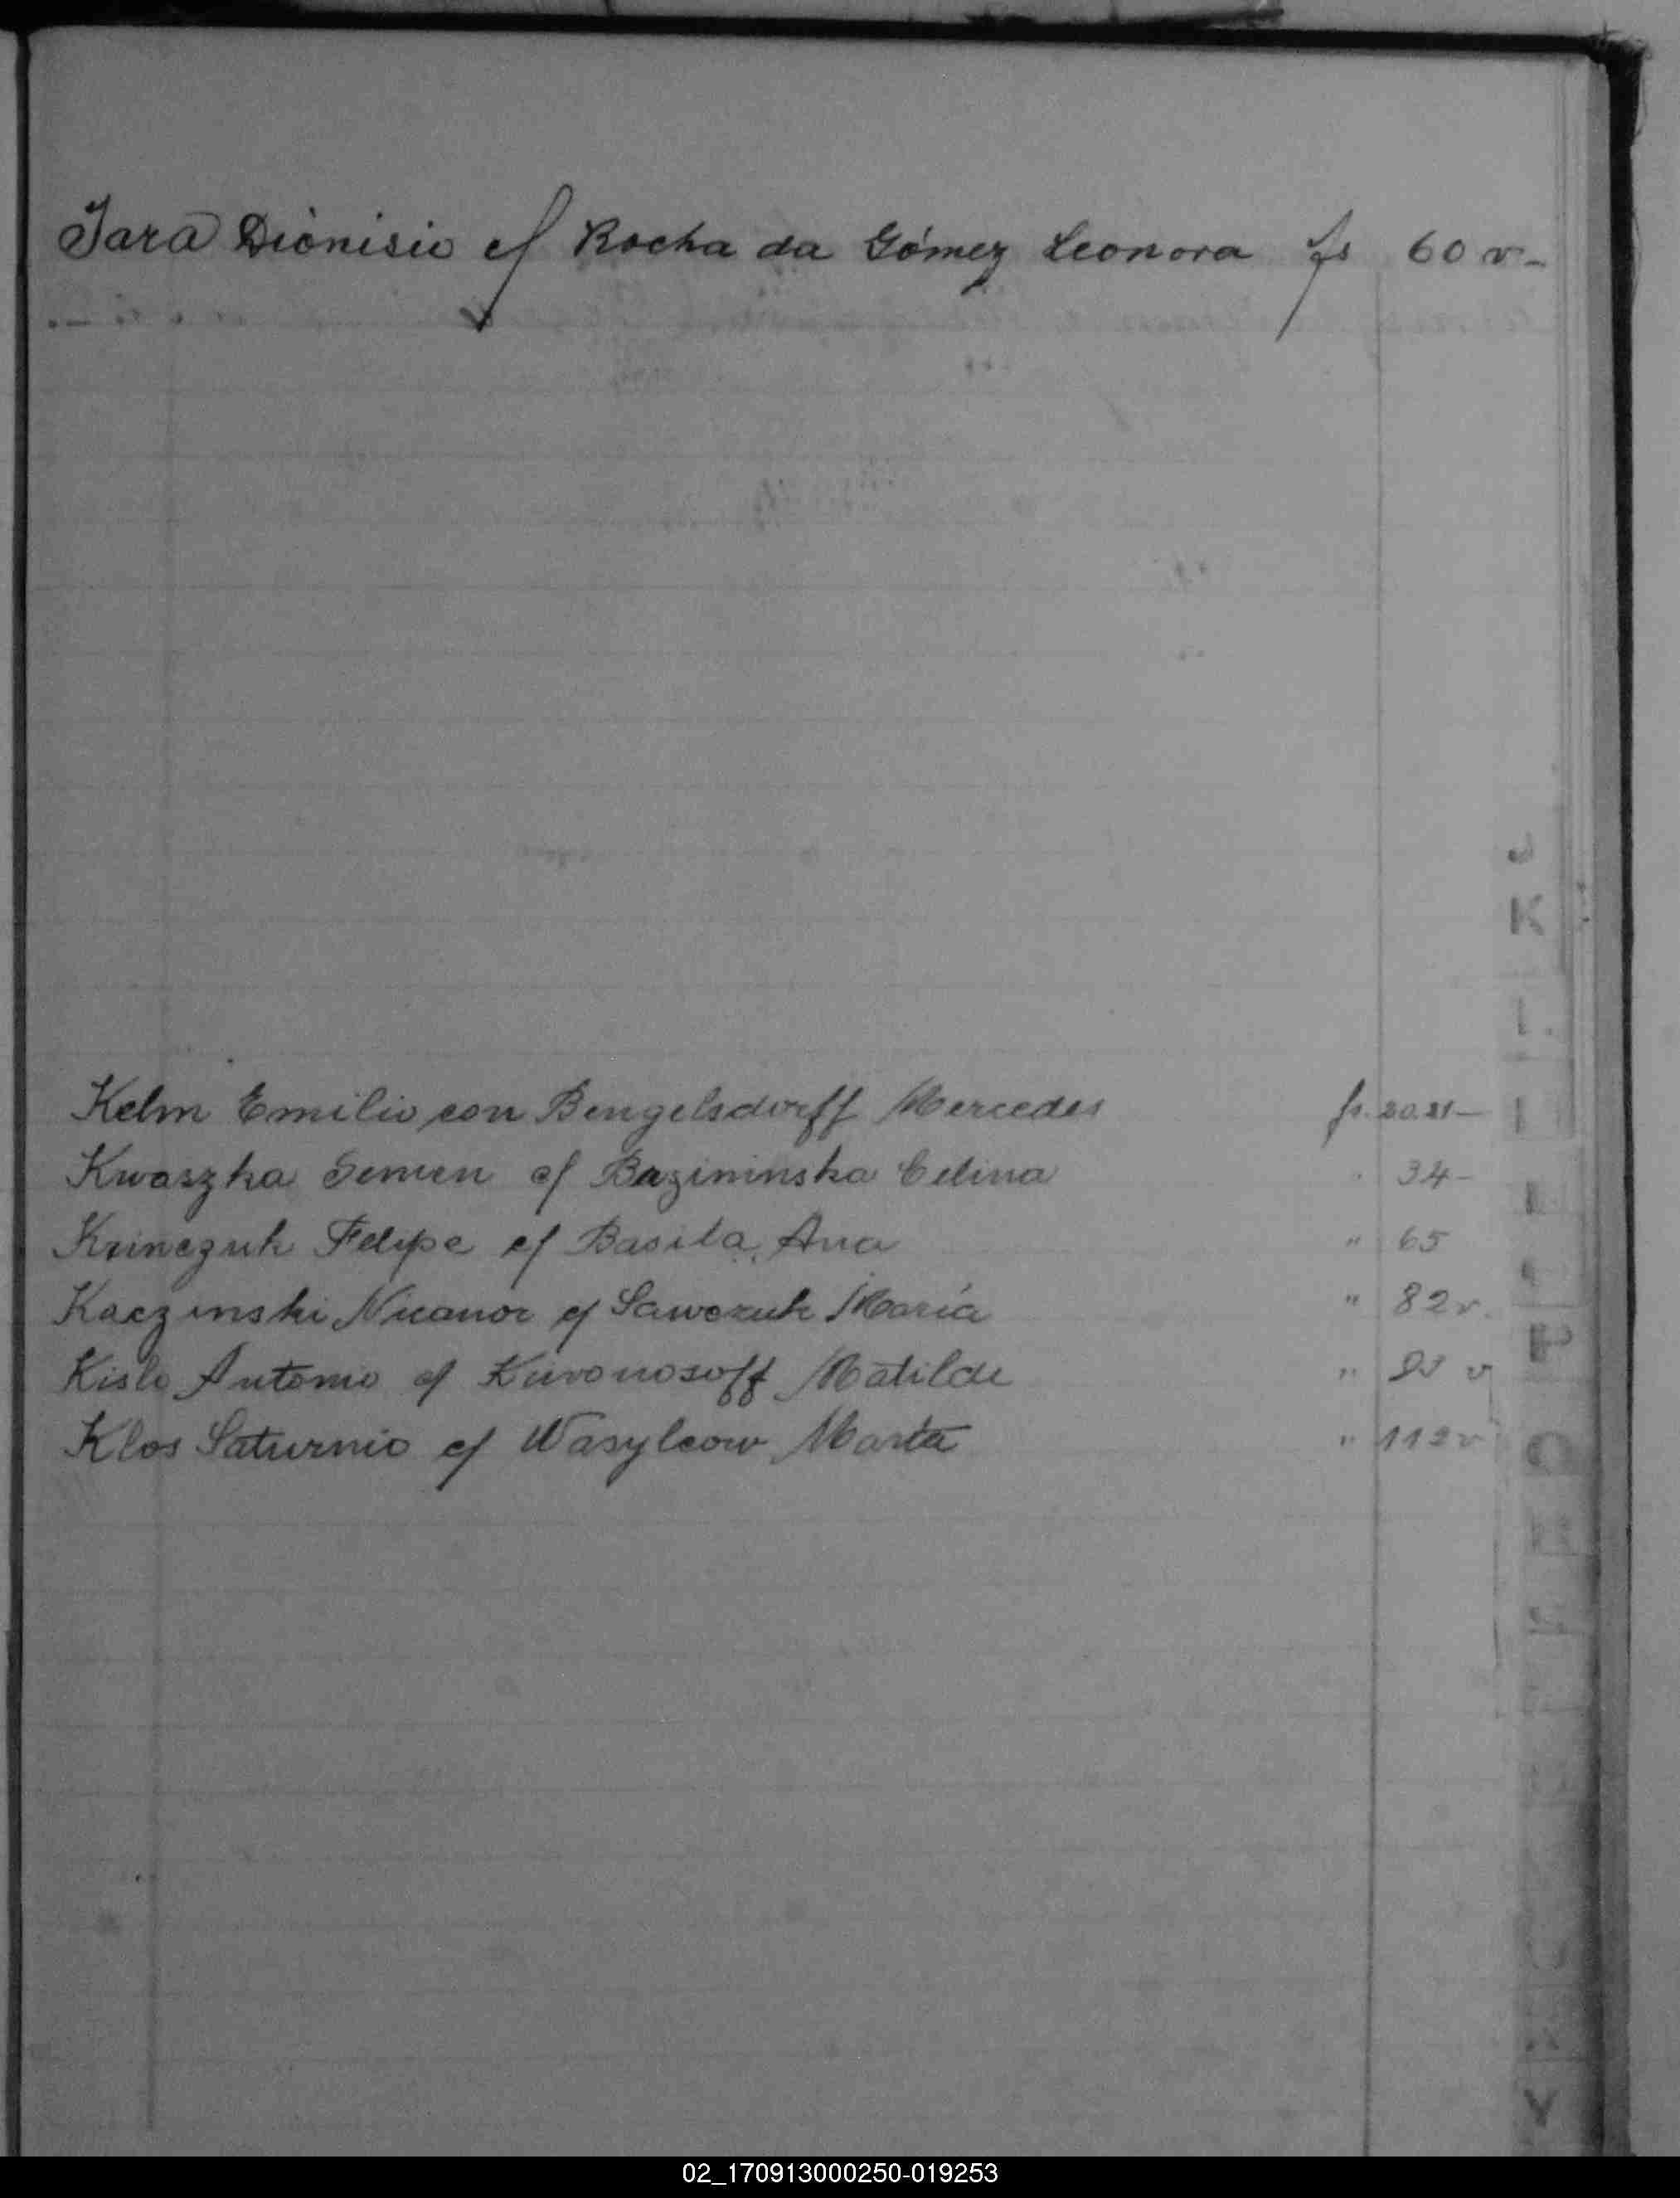 Jara Dionisio c/ Rocha da Gómez Leonora fs 60 v-
J
K
L
Kelm Emilio con Bengelsdorff Mercedes fs. 20.21-
Kwaszka Semen c/ Bazininska Celina " 34-
Krinczuk Felipe c/ Basila, Ana " 65
Kaczinski Nicanor c/ Sawczuk María " 82v.
Kislo Antonio c/ Matilde " v
Klos Saturnio c/ Wasylcow Marta " 112v
V
02_170913000250-019253